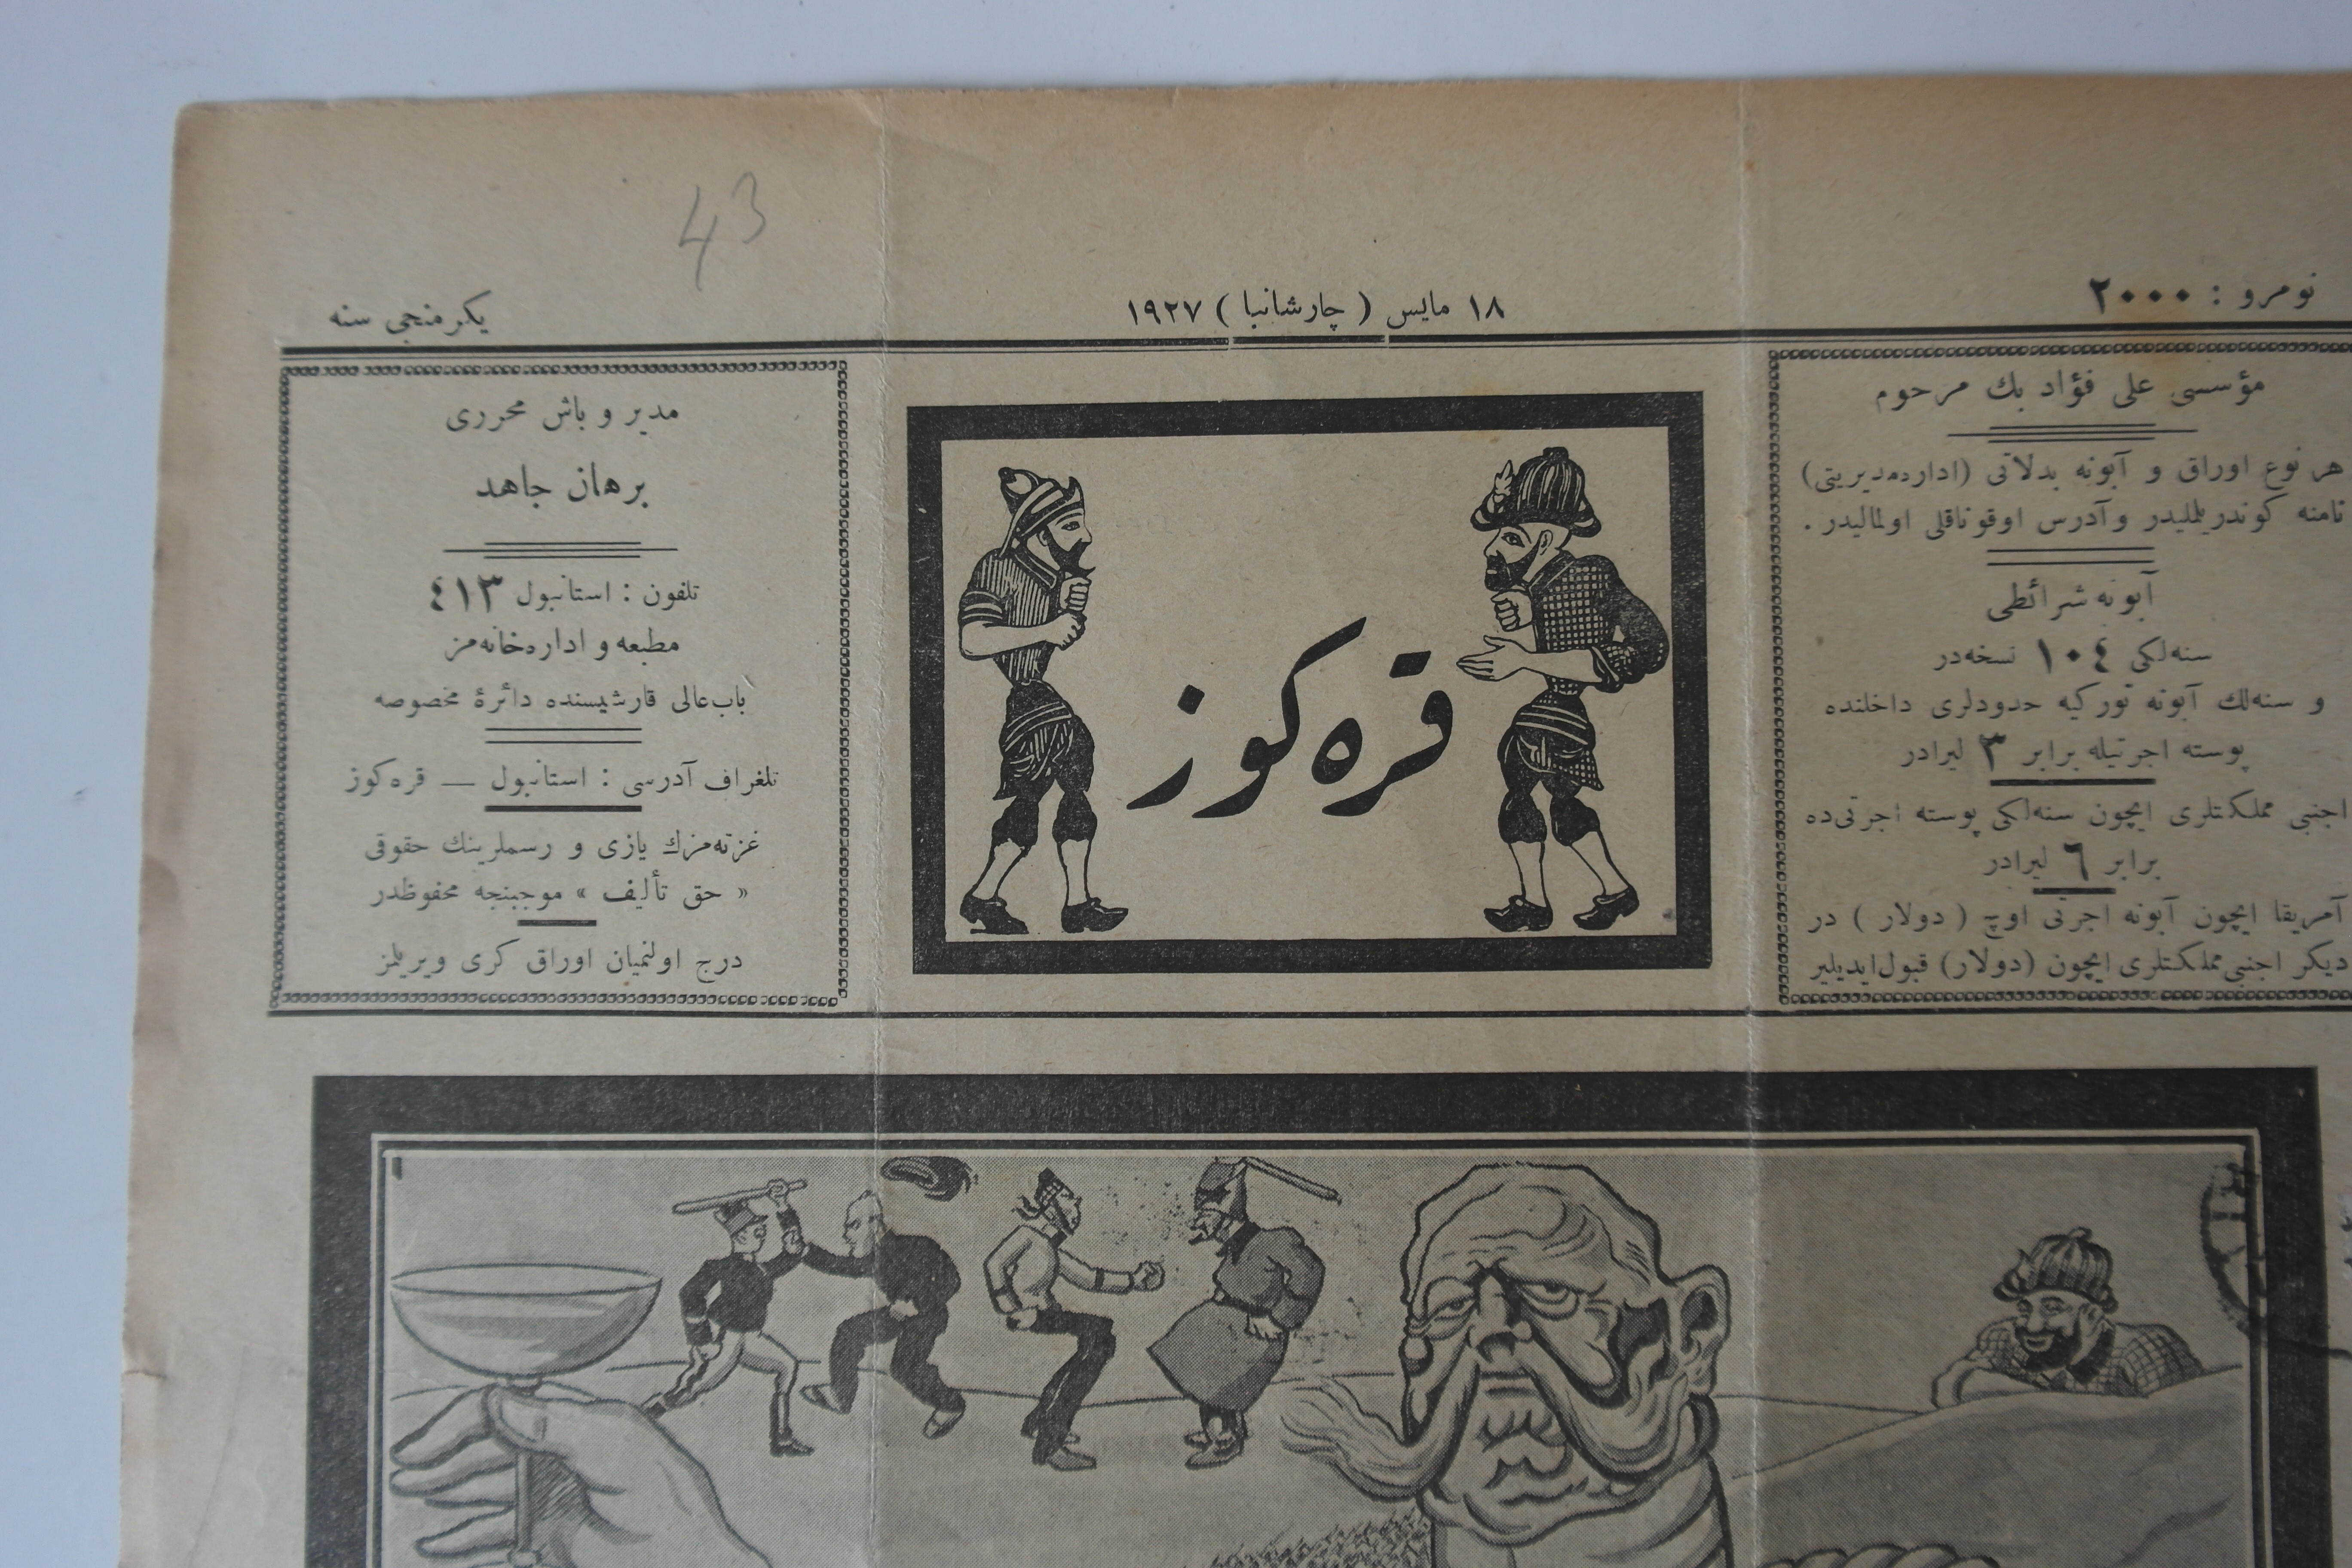 43
نومرو : ٢٠٠٠
١٨ مايس ( چارشانبا ) ١٩٢٧
يكرمنجى سنه
مؤسسى على فؤاد بك مرحوم
هر نوع اوراق و آبونه بدلاتى (اداره‌مديريتى)
نامنه كوندريلمليدر و آدرس اوقوناقلى اولماليدر .
آبونه شرائطى
سنه‌لكى ١٠٤ نسخه‌در
و سنه‌لك آبونه توركيه حدودلرى داخلنده
پوسته اجرتيله برابر ٣ ليرادر
اجنبى مملكتلرى ايچون سنه‌لكى پوسته اجرتى‌ده
برابر ٦ ليرادر
آمريقا ايچون آبونه اجرتى اوچ ( دولار ) در
ديكر اجنبى مملكتلرى ايچون (دولار) قبول ايديلير
قره‌كوز
مدير و باش محررى
برهان جاهد
تلفون : استانبول ٤١٣
مطبعه و اداره‌خانه‌مز
باب‌عالى قارشيسنده دائرهٔ مخصوصه
تلغراف آدرسى : استانبول — قره‌كوز
غزته‌مزك يازى و رسملرينك حقوقى
« حق تأليف » موجبنجه محفوظدر
درج اولنميان اوراق كرى ويريلمز